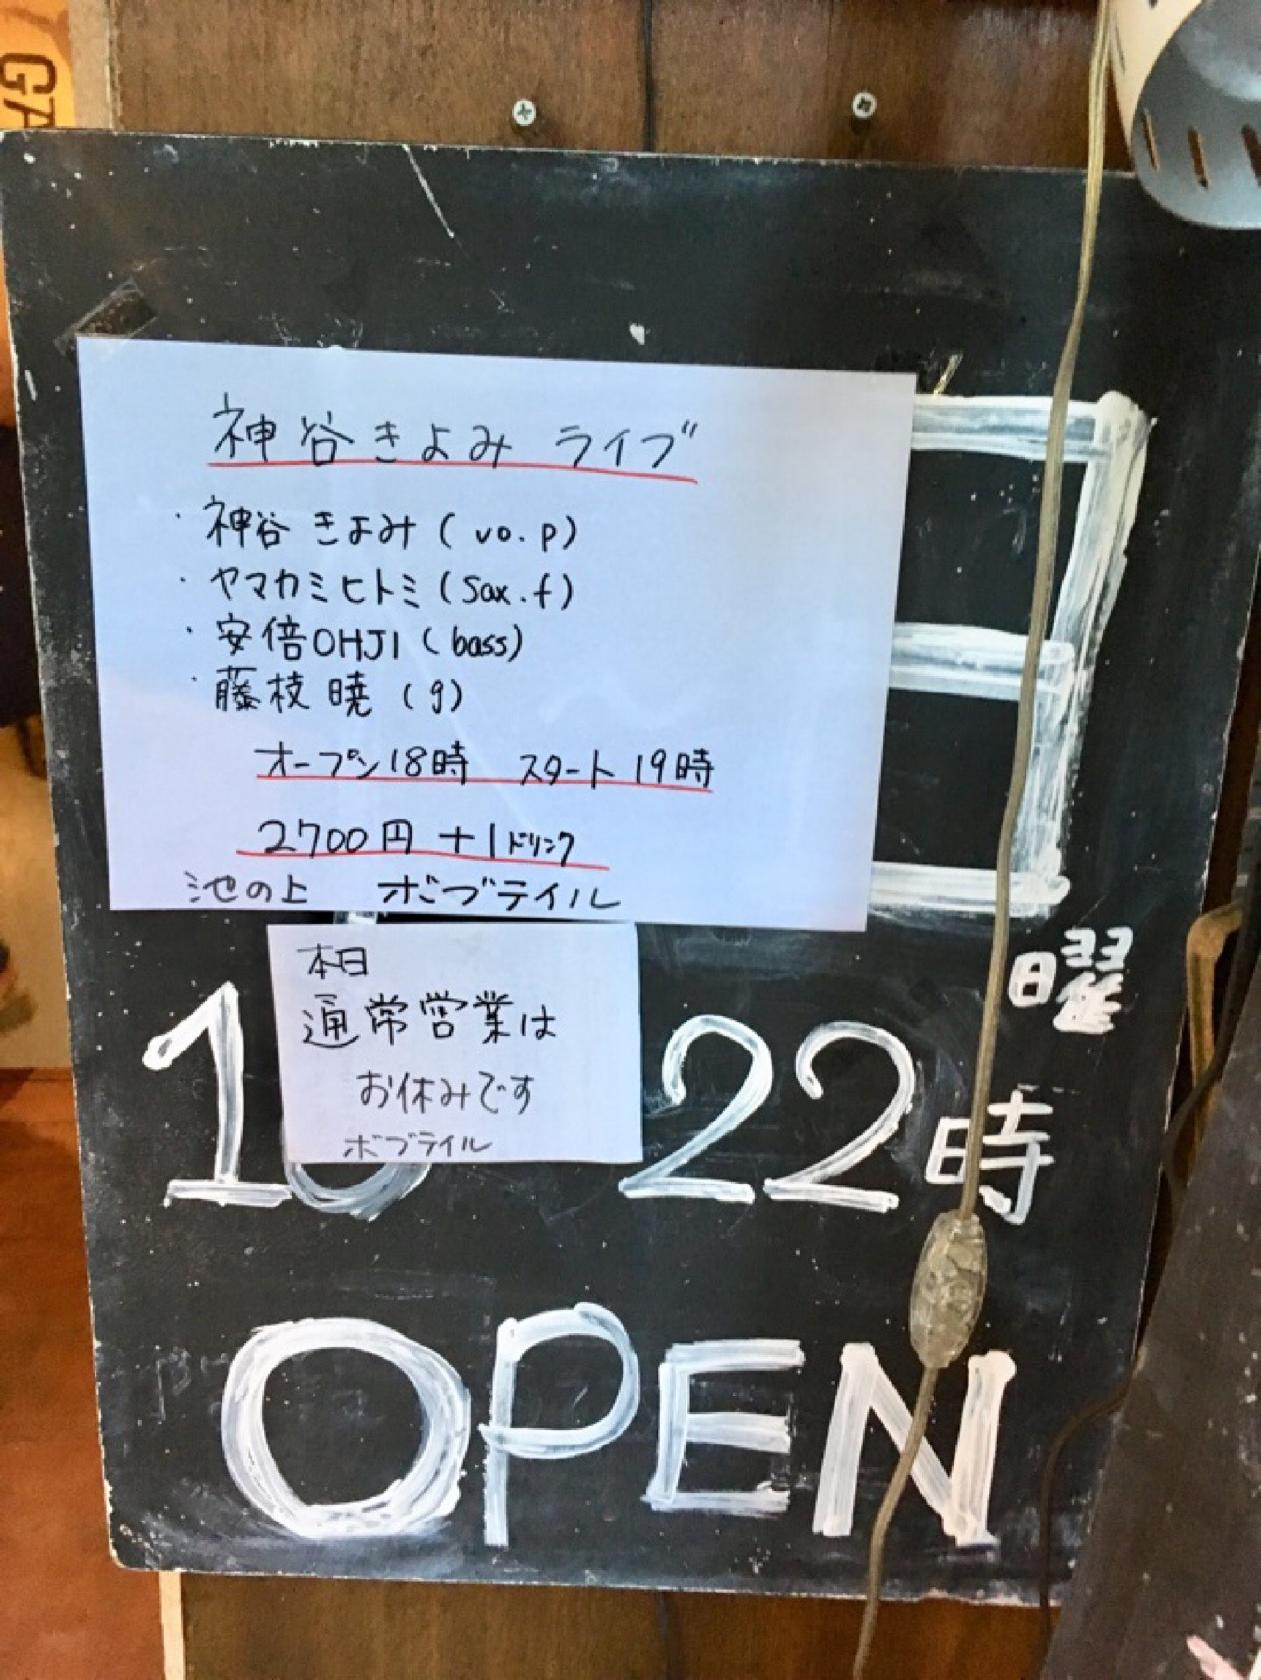 GA
神谷きよみ ライブ
・神谷 きよみ (vo.p)
・ヤマカミヒトミ (Sax.f)
・安倍OHJI (bass)
・藤枝 暁 (g)
オープン18時 スタート19時
2700円 +1ドリンク
池の上 ボブテイル
日
曜
本日
通常営業は
お休みです
ボブテイル
22時
OPEN